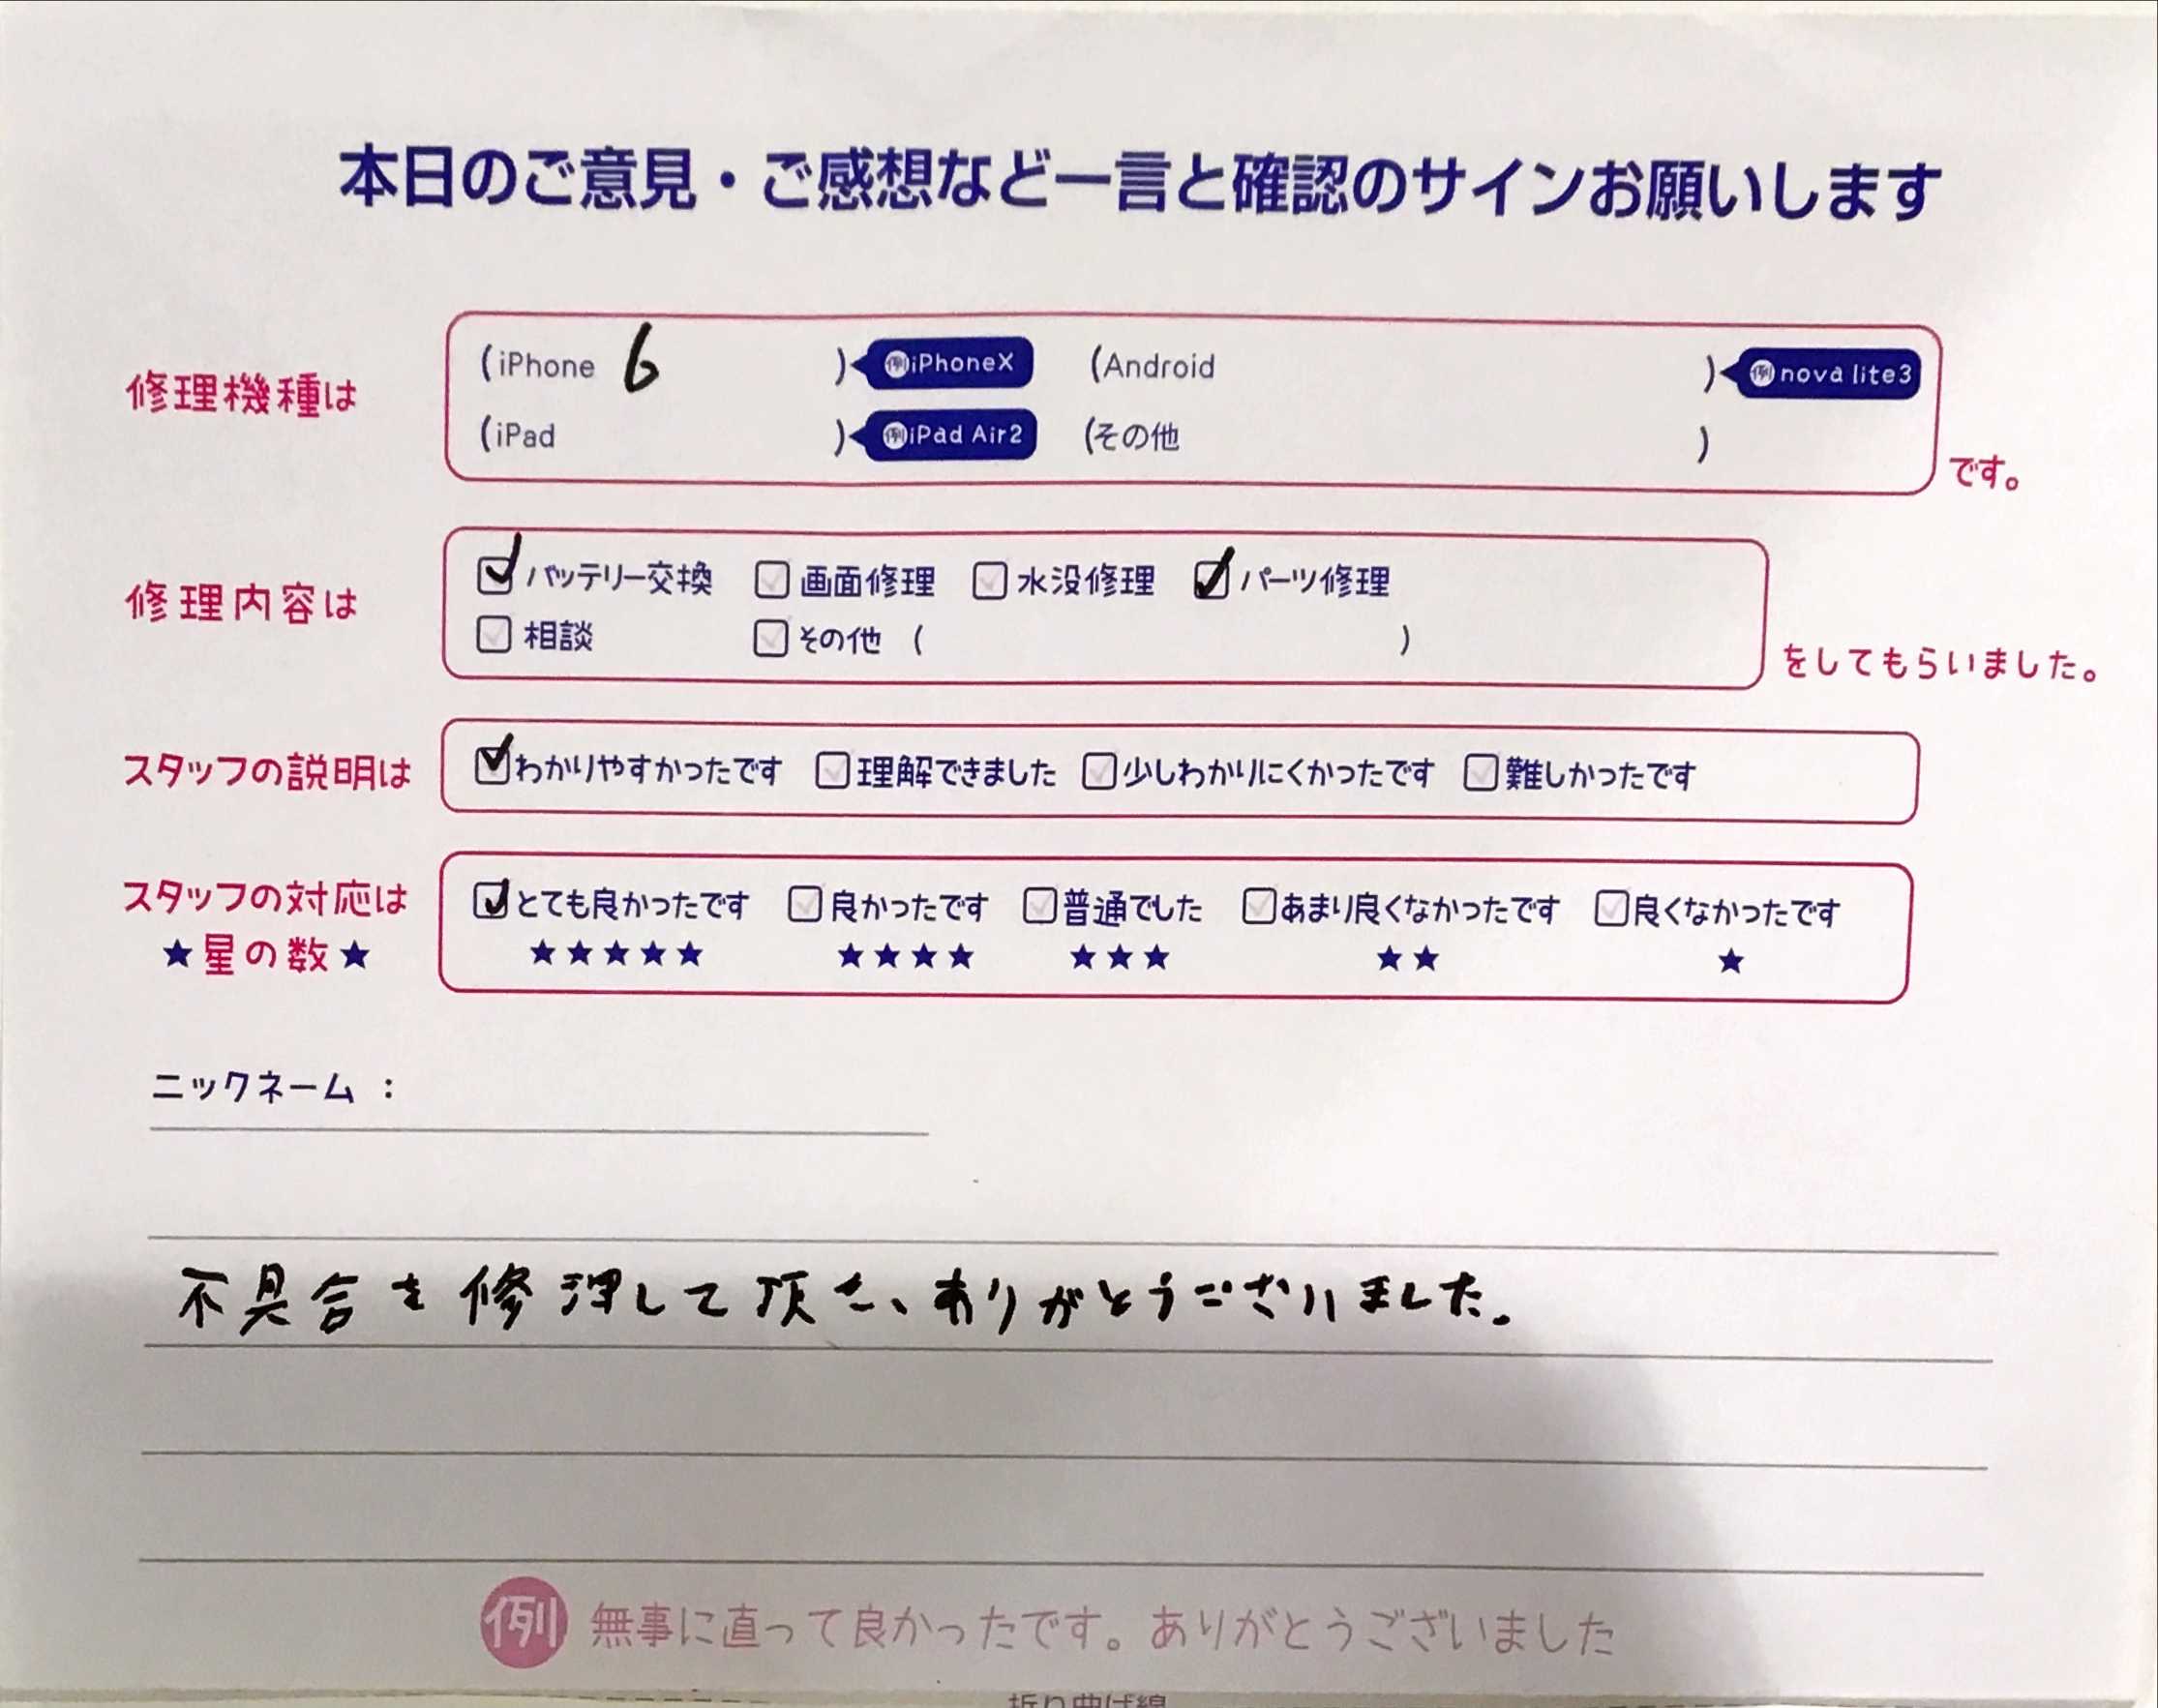 本日のご意見・ご感想など一言と確認のサインお願いします
修理機種は
(iPhone 6 ) 例iPhoneX (Android ) 例nova lite3
(iPad ) 例iPad Air2 (その他 )
です。
修理内容は
バッテリー交換 画面修理 水没修理 パーツ修理
相談 その他 ( )
をしてもらいました。
スタッフの説明は
わかりやすかったです 理解できました 少しわかりにくかったです 難しかったです
スタッフの対応は
★星の数★
とても良かったです 良かったです 普通でした あまり良くなかったです 良くなかったです
★★★★★ ★★★★ ★★★ ★★ ★
ニックネーム :
不具合を修理して頂き、ありがとうございました。
例 無事に直って良かったです。ありがとうございました
折り曲げ線